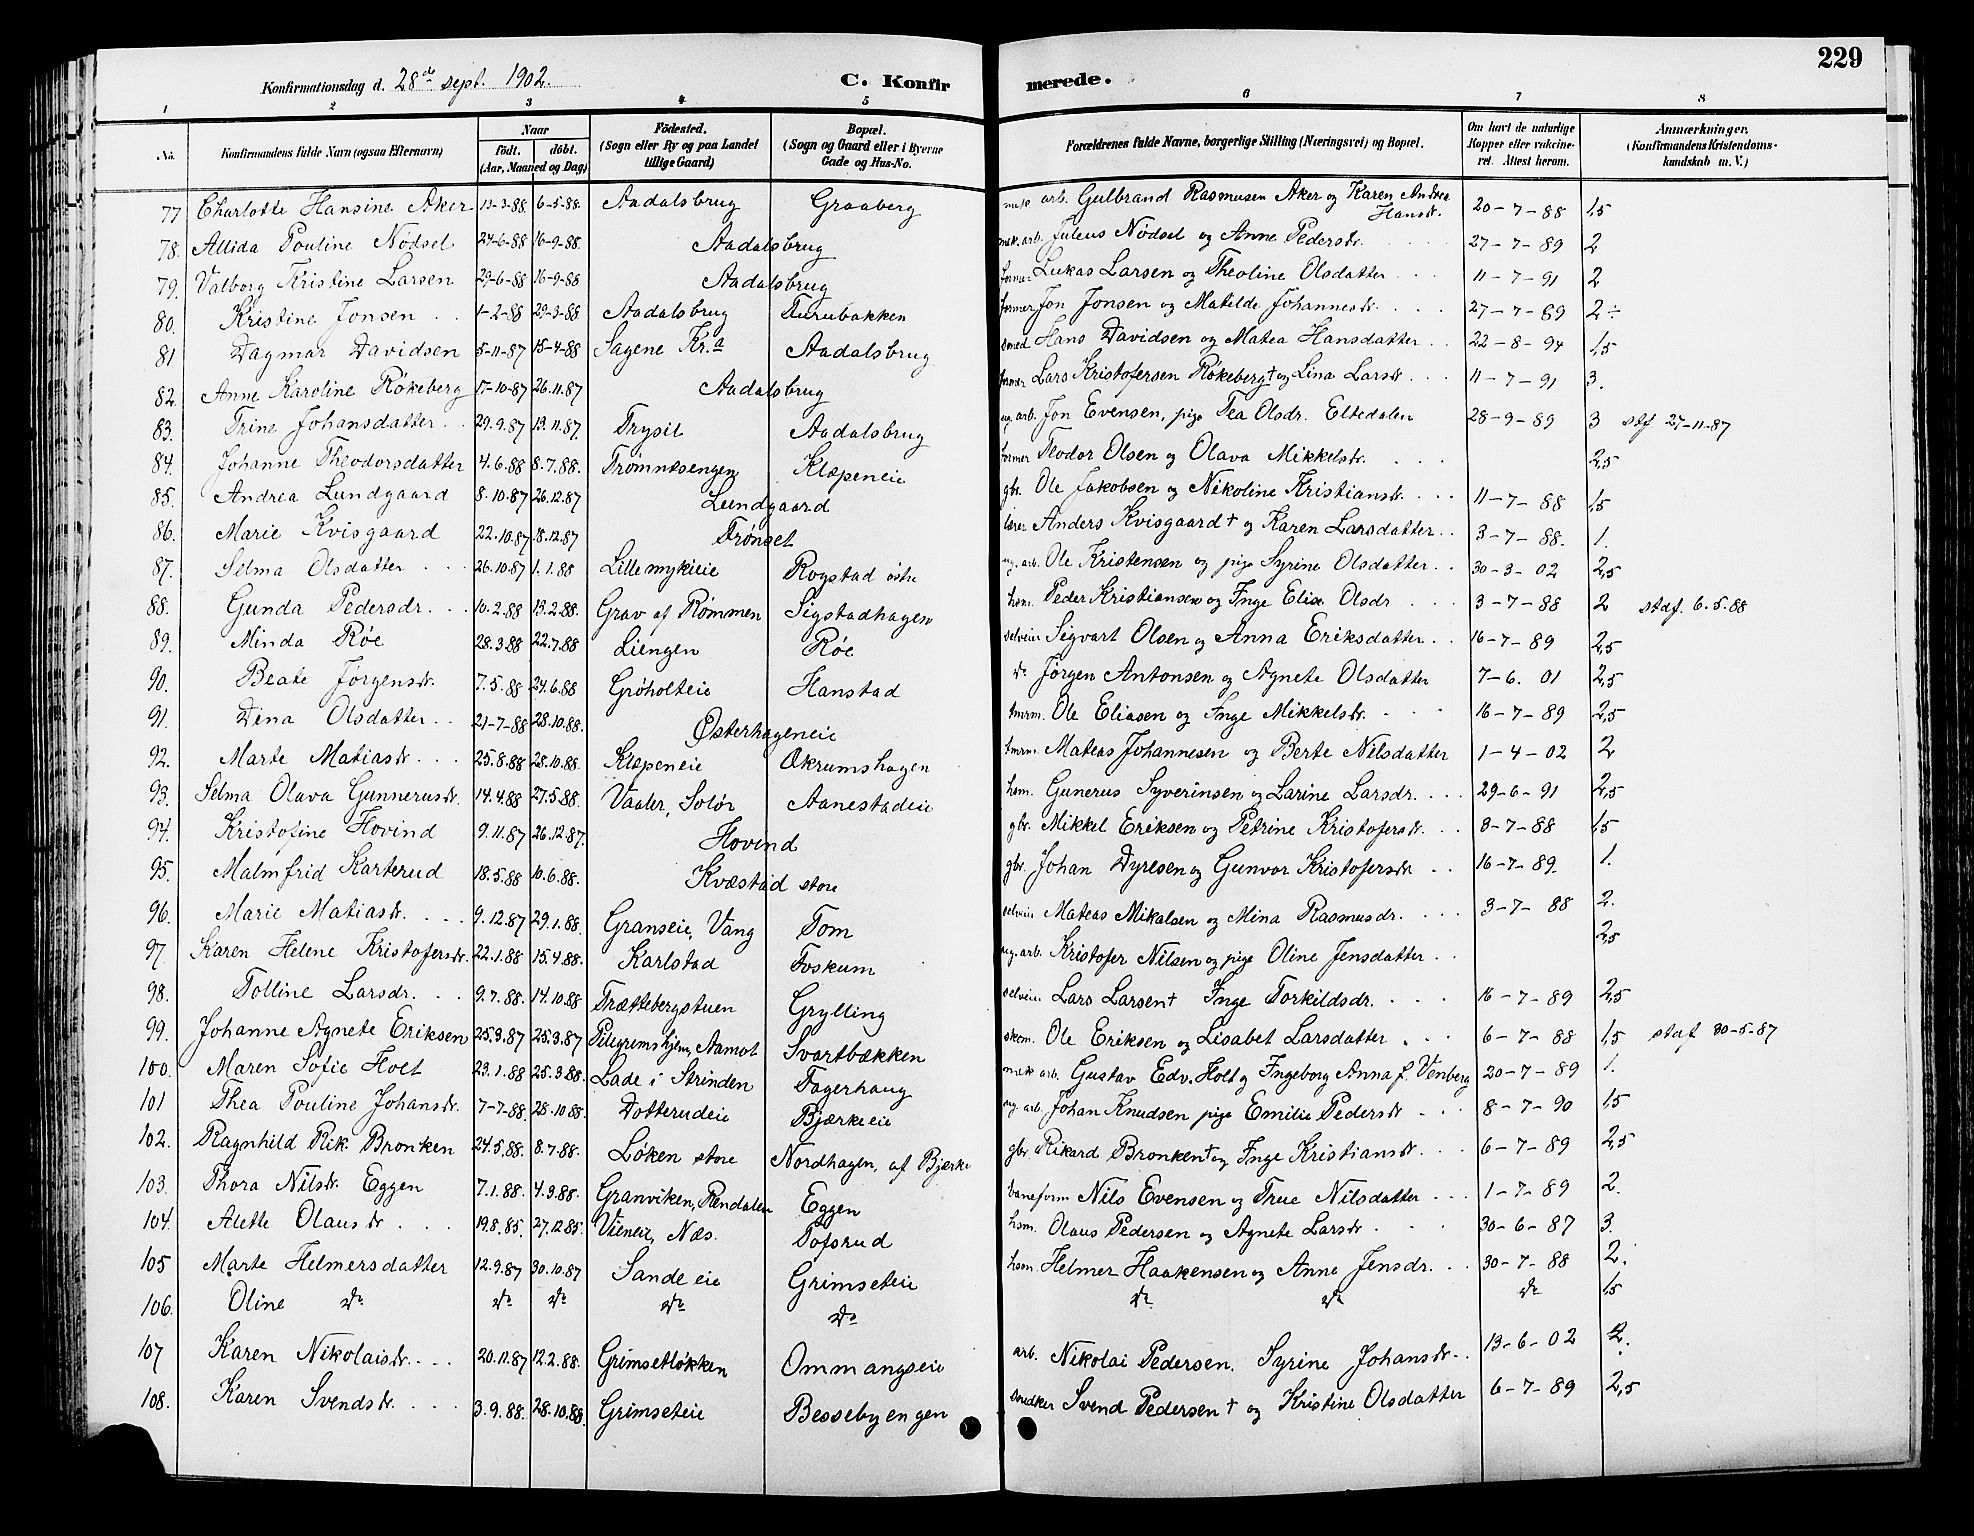 229
Konfirmationsdag d. 28de sept. 1902. C. Konfirmerede.
1 2 3 4 5 6 7 8
No. Konfirmandens fulde Navn (ogsaa Efternavn) Naar Født. døbt. (Aar, Maaned og Dag) Fødested. (Sogn eller By og paa Landet tillige Gaard) Bopæl. (Sogn og Gaard eller i Byerne Gade og Hus-No. Forældrenes fulde Navne, borgerlige Stilling (Næringsvei) og Bopæl. Om havt de naturlige Kopper eller vakcineret. Attest herom. Anmærkninger. (Konfirmandens Kristendomskundskab m. V.)
77 Charlotte Hansine Aker 13-3-88 6-5-88 Aadalsbrug Graaberg mek arb. Gulbrand Rasmusen Aker og Karen Andrea Hansdr. 20-7-88 1,5
78. Allida Pouline Nødsel 24-6-88 16-9-88 Aadalsbrug mek. arb. Juleus Nødsel og Anne Pedersdr. 27-7-89 2
79. Valborg Kristine Larsen 29-6-88 16-9-88 Aadalsbrug former Lukas Larsen og Theoline Olsdatter 11-7-91 2
80. Kristine Jonsen 1-2-88 29-3-88 Aadalsbrug Furubakken former Jon Jonsen og Matilde Johannesdr. 27-7-89 2÷
81 Dagmar Davidsen 5-11-87 15-4-88 Sagene Kr.a Aadalsbrug smed Hans Davidsen og Matea Hansdatter 22-8-94 1,5
82. Anne Karoline Røkeberg 17-10-87 26.11.87 Aadalsbrug former Lars Kristofersen Røkeberg† og Lina Larsdr. 11-7-91 3.
83. Trine Johansdatter 29.9.87 13.11.87. Trysil Aadalsbrug ug. arb. Jon Evensen, pige Tea Olsdr. Eltedalen 28-9-89 3 stf 27-11-87
84. Johanne Theodorsdatter 4.6.88 8.7.88. Trømnæsengen Klæpeneie former Teodor Olsen og Olava Mikkelsdr. 2,5
85. Andrea Lundgaard 8.10.87 26.12.87 Lundgaard gbr. Ole Jakobsen og Nikoline Kristiansdr. 11-7-88 1,5
86. Marie Kvisgaard 22.10.87 18.12.87 Trønset lærer Anders Kvisgaard† og Karen Larsdatter 3-7-88. 1.
87. Selma Olsdatter 26.10.87 1.1.88 Lille mykieie Rogstad østre ug. arb. Ole Kristensen og pige Syrine Olsdatter 30-3-02 2,5
88. Gunda Pedersdr. 10.2.88 13.2.88. Grav af Rømmen Sigstadhagen hsm. Peder Kristiansen og Inge Elise Olsdr 3-7-88 2 staf. 6.5.88
89. Minda Røe 28.3.88 22.7.88 Liengen Røe selveier Sigvart Olsen og Anna Eriksdatter 16-7-89 2,5
90. Beate Jørgensdr. 7.5.88 24.6.88 Grøholteie Hanstad do Jørgen Antonsen og Agnete Olsdatter 7-6.01 2,5
91. Dina Olsdatter 21-7-88 28.10.88. Østerhageneie tmrm. Ole Eliasen og Inge Mikkelsdr. 16-7-89 2,5
92. Marte Matiasdr. 25.8.88 28.10.88. Klæpeneie Økrumshagen tmrm. Mateas Johannesen og Berte Nilsdatter 1-4-02 2
93. Selma Olava Gunnerusdr. 14.4.88 27.5.88. Vaaler, Solør Aanestadeie hsm. Gunerus Syverinsen og Larine Larsdr. 29-6-91 2,5
94. Kristofine Hovind 9.11.87 26.12.87. Hovind gbr. Mikkel Eriksen og Petrine Kristofersdr. 8-7-88 1,5
95. Malmfrid Karterud 18.5.88 10.6.88. Kvæstad store gbr. Johan Dyresen og Gunvor Kristofersdr. 16-7-89. 1.
96. Marie Matiasdr. 9.12.87 29.1.88. Granseie, Vang Tom selveier Mateas Mikalsen og Mina Rasmusdr. 3-7-88 2.
97. Karen Helene Kristofersdr. 22.1.88 15.4.88. Karlstad Foskum ug. arb. Kristofer Nilsen og pige Oline Jensdatter 2,5
98. Tolline Larsdr. 9.7.88. 14.10.88 Trættebergstuen Grylling selveier Lars Larsen† Inge Torkildsdr. 16-7-89 2,5
99. Johanne Agnete Eriksen 25.3.87 25.3.87 Pilegremshjem, Aamot Svartbækken skom. Ole Eriksen og Lisabet Larsdatter 6-7-88 1,5 staf 30-5-87
100. Maren Sofie Holt 23.1.88 25.3.88. Lade i Strinden Fagerhaug mek arb. Gustav Edv. Holt og Ingeborg Anna f. Venberg 20-7-89 1.
101 Thea Pouline Johansdr. 7-7-88. 28.10.88. Dotterudeie Bjærkeeie ug. arb. Johan Knudsen pige Emilie Pedersdr. 8-7-90 1,5
102. Ragnhild Rik. Bronken 24.5.88. 8.7.88. Løken store Nordhagen, af Bjærke gbr Rikard Bronken† og Inge Kristiansdr. 6-7-89 2,5
103. Thora Nilsdr. Eggen 7.1.88. 4.3.88. Granviken, Rendalen Eggen baneform Nils Evensen og True Nilsdatter 1-7-89 2.
104. Alette Olausdr. 19.8.85. 27.12.85. Vieneie, Næs. Pofsrud hsm. Olaus Pedersen og Agnete Larsdr. 30-6-87 3.
105 Marte Helmersdatter 12.9.87 30.10.87 Sande eie Grimseteie hsm. Helmer Haakensen og Anne Jensdr. 30-7-88 2.
106. Oline do do do do do do do do 1,5
107 Karen Nikolaisdr. 20.11.87 12.2.88. Grimsetløkken Ommangseie arb. Nikolai Pedersen. Syrine Johansdr. 13-6-02 2.
108. Karen Svendsdr. 3.9.88. 28.10.88. Grimseteie Bessebyengen snedker Svend Pedersen† og Kristine Olsdatter 6-7-89 2,5